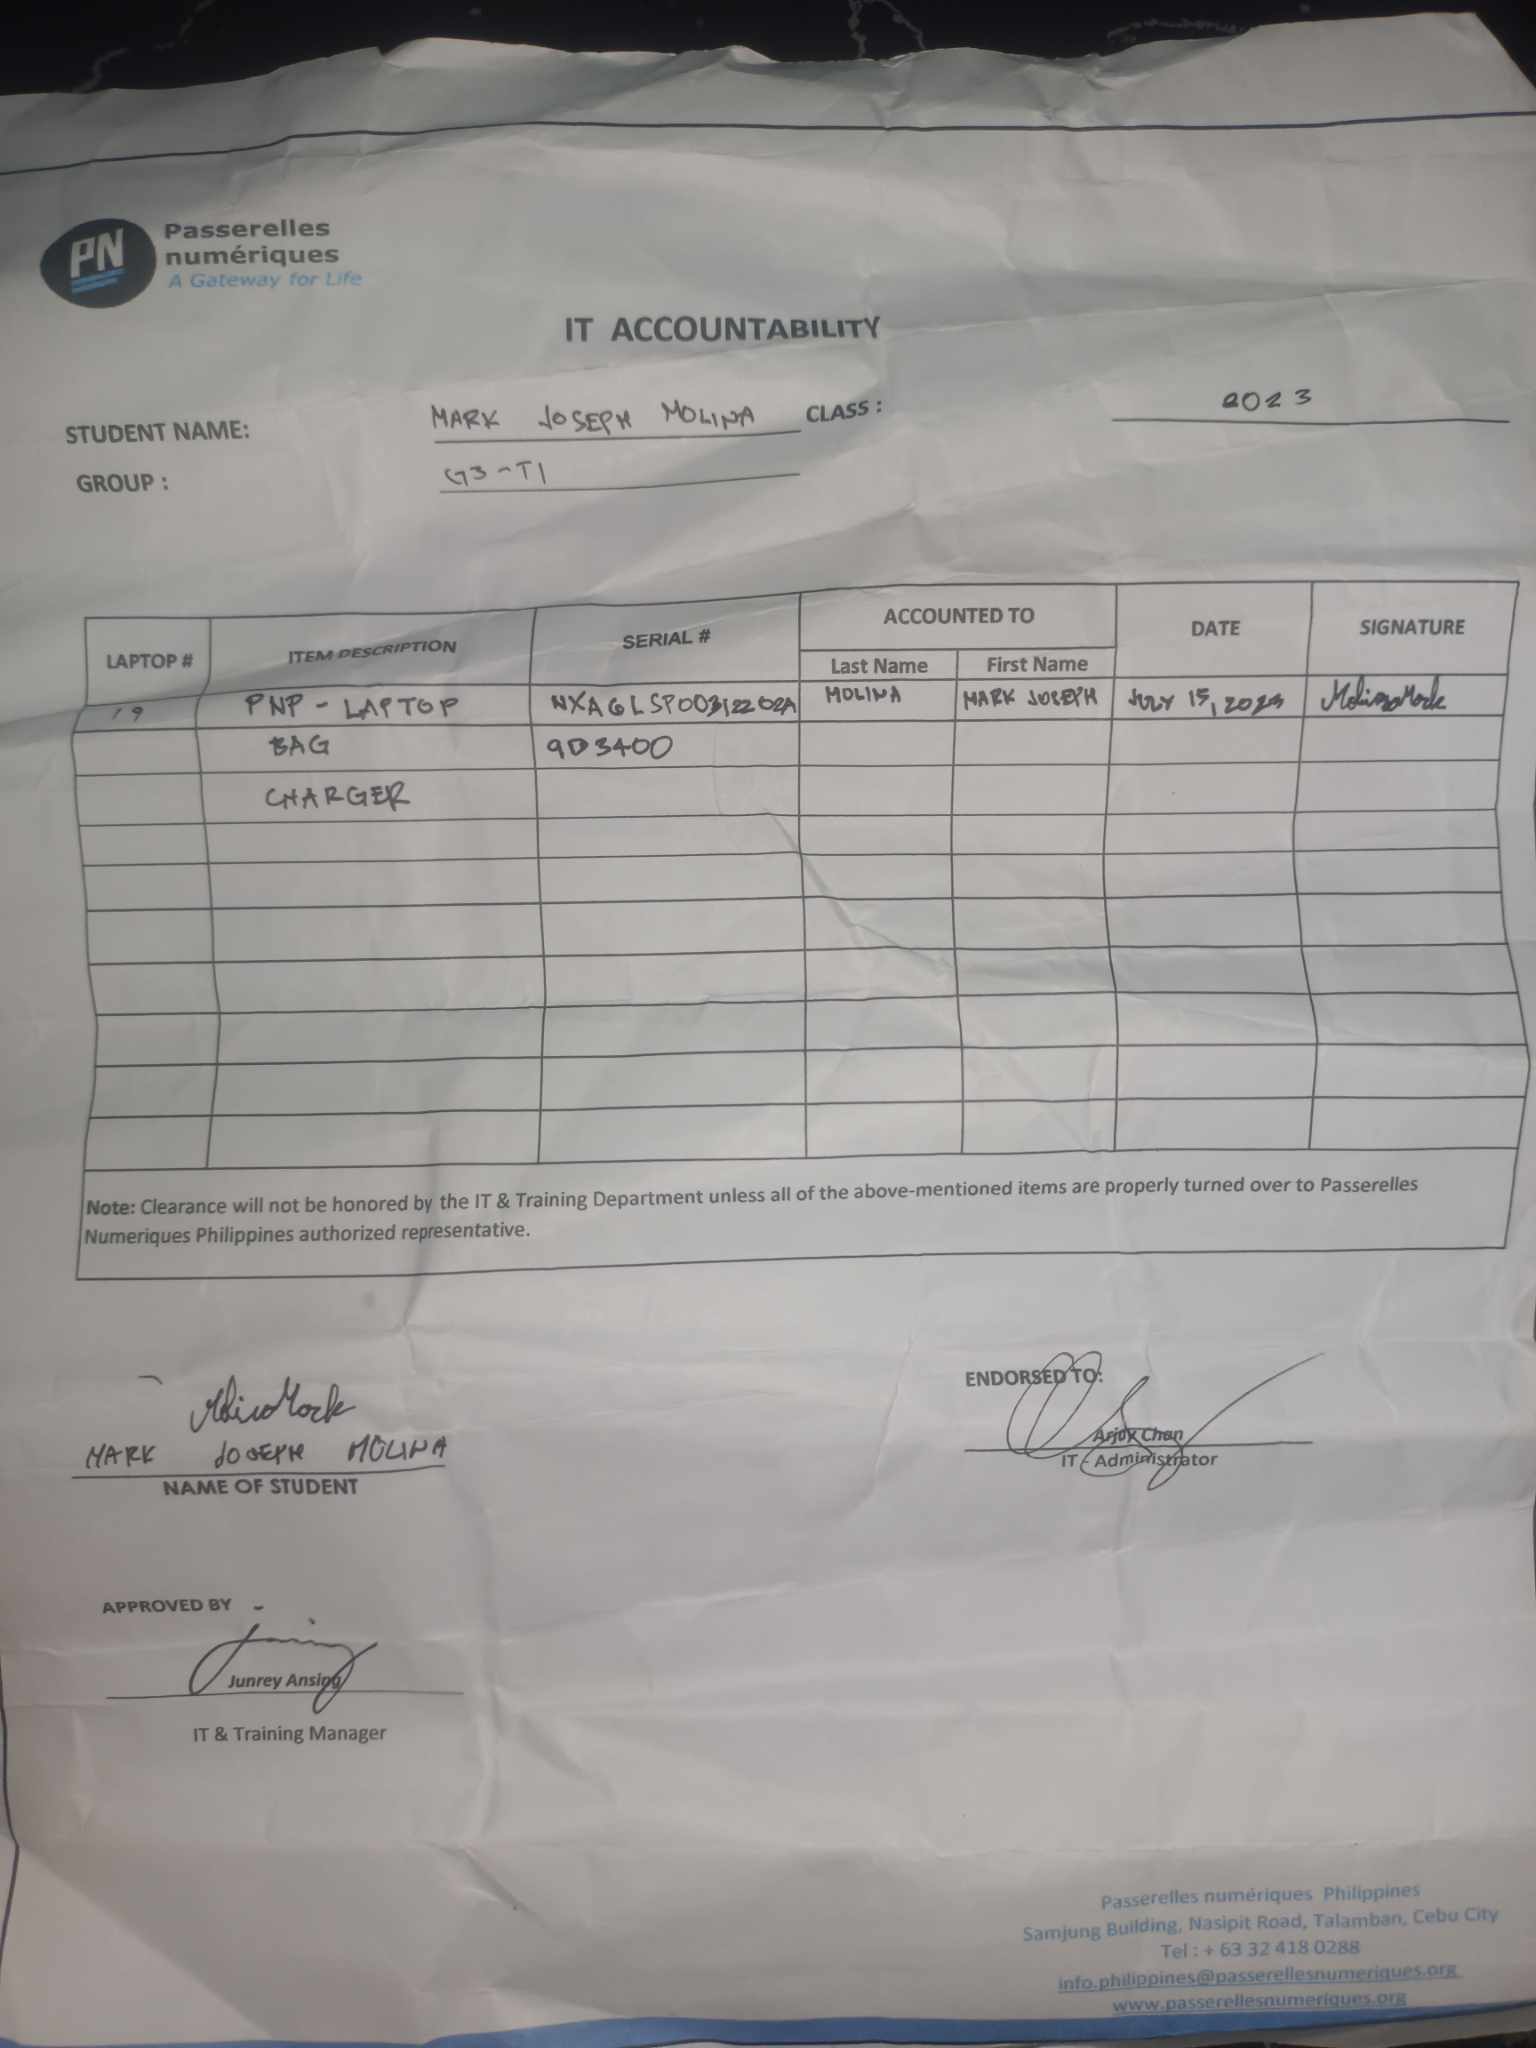 PN Passerelles
numériques
A Gateway for Life
IT ACCOUNTABILITY
STUDENT NAME: MARK JOSEPH MOLINA CLASS : 2023
GROUP : G3-T1
LAPTOP # ITEM DESCRIPTION SERIAL # ACCOUNTED TO DATE SIGNATURE
Last Name First Name
19 PNP - LAPTOP NXAGLSP00312202A MOLINA MARK JOSEPH JULY 15, 2023 MolinaMark
BAG 9D3400
CHARGER
Note: Clearance will not be honored by the IT & Training Department unless all of the above-mentioned items are properly turned over to Passerelles
Numeriques Philippines authorized representative.
MolinaMark
MARK JOSEPH MOLINA
NAME OF STUDENT
ENDORSED TO:
Arjoy Chan
IT - Administrator
APPROVED BY
Junrey Ansing
IT & Training Manager
Passerelles numériques Philippines
Samjung Building, Nasipit Road, Talamban, Cebu City
Tel : + 63 32 418 0288
info.philippines@passerellesnumeriques.org
www.passerellesnumeriques.org